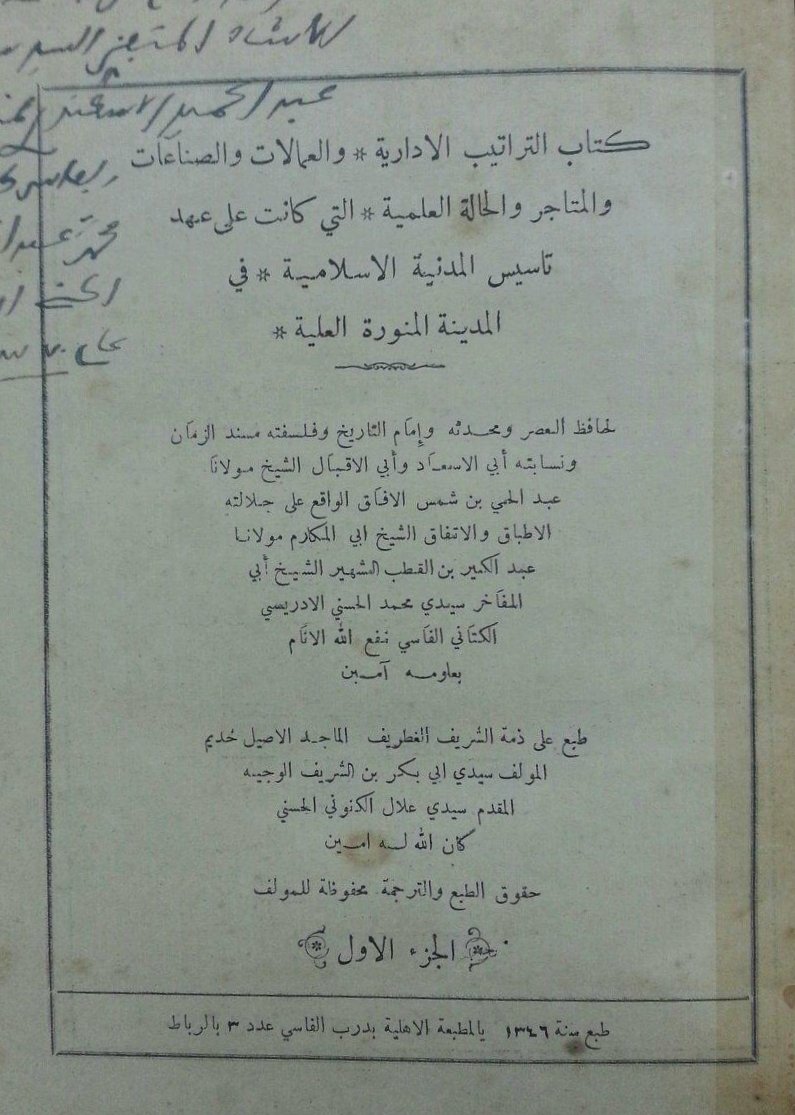 للأستاذ
عبد الحميد
محمد عبد
كتاب التراتيب الادارية * والعمالات والصناعات
والمتاجر والحالة العلمية * التي كانت على عهد
تاسيس المدنية الاسلامية * في
المدينة المنورة العلية *
لحافظ العصر ومحدثه وإمام التاريخ وفلسفته مسند الزمان
ونسابته أبي الاسعاد وأبي الاقبال الشيخ مولانا
عبد الحي بن شمس الافاق الواقع على جلالته
الاطباق والاتفاق الشيخ ابي المكارم مولانا
عبد الكبير بن القطب الشهير الشيخ أبي
المفاخر سيدي محمد الحسني الادريسي
الكتاني الفاسي نفع الله الانام
بعلومه آمين
طبع على ذمة الشريف الغطريف الماجد الاصيل خديم
المولف سيدي ابي بكر بن الشريف الوجيه
المقدم سيدي علال الكنوني الحسني
كان الله له امين
حقوق الطبع والترجمة محفوظة للمولف
الجزء الاول
طبع سنة ١٣٤٦ بالمطبعة الاهلية بدرب الفاسي عدد ٣ بالرباط